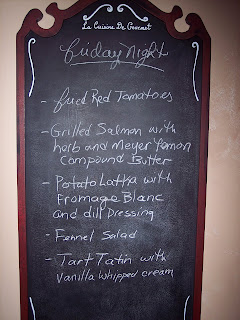 La Cuisine De Gourmet
Friday Night
- fried Red Tomatoes
- Grilled Salmon with
herb and Meyer Lemon
Compound Butter
- Potato Latka with
Fromage Blanc
and dill Dressing
- Fennel Salad
- Tart Tatin with
Vanilla whipped cream